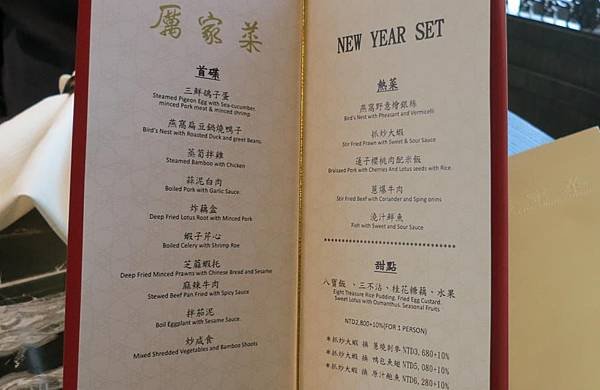 厲家菜
首碟
三鮮鴿子蛋
Steamed Pigeon Egg with Sea-cucumber,
minced Pork meat & minced shrimp
燕窩扁豆鍋燒鴨子
Bird's Nest with Roasted Duck and greet Beans.
蒸筍拌雞
Steamed Bamboo with Chicken
蒜泥白肉
Boiled Pork with Garlic Sauce.
炸藕盒
Deep Fried Lotus Root with Minced Pork
蝦子芹心
Boiled Celery with Shrimp Roe
芝蔴蝦托
Deep Fried Minced Prawns with Chinese Bread and Sesame
麻辣牛肉
Stewed Beef Pan Fried with Spicy Sauce
拌茄泥
Boil Eggplant with Sesame Sauce.
炒咸食
Mixed Shredded Vegetables and Bamboo Shoots
NEW YEAR SET
熱菜
燕窩野意燴銀絲
Bird's Nest with Pheasant and Vermicelli
抓炒大蝦
Stir Fried Prawn with Sweet & Sour Sauce
蓮子櫻桃肉配米飯
Braised Pork with Cherries And Lotus seeds with Rice.
蔥爆牛肉
Stir Fried Beef with Coriander and Sping onins
澆汁鮮魚
Fish with Sweet and Sour Sauce
****************************
甜點
八寶飯、三不沾、桂花糖藕、水果
Eight Treasure Rice Pudding, Fried Egg Custard,
Sweet Lotus with Osmanthus. Seasonal Fruits
NTD2,800+10%(FOR 1 PERSON)
*抓炒大蝦 換 蔥燒刺參 NTD3,680+10%
*抓炒大蝦 換 鴨包魚翅 NTD5,080+10%
*抓炒大蝦 換 原汁鮑魚 NTD6,280+10%